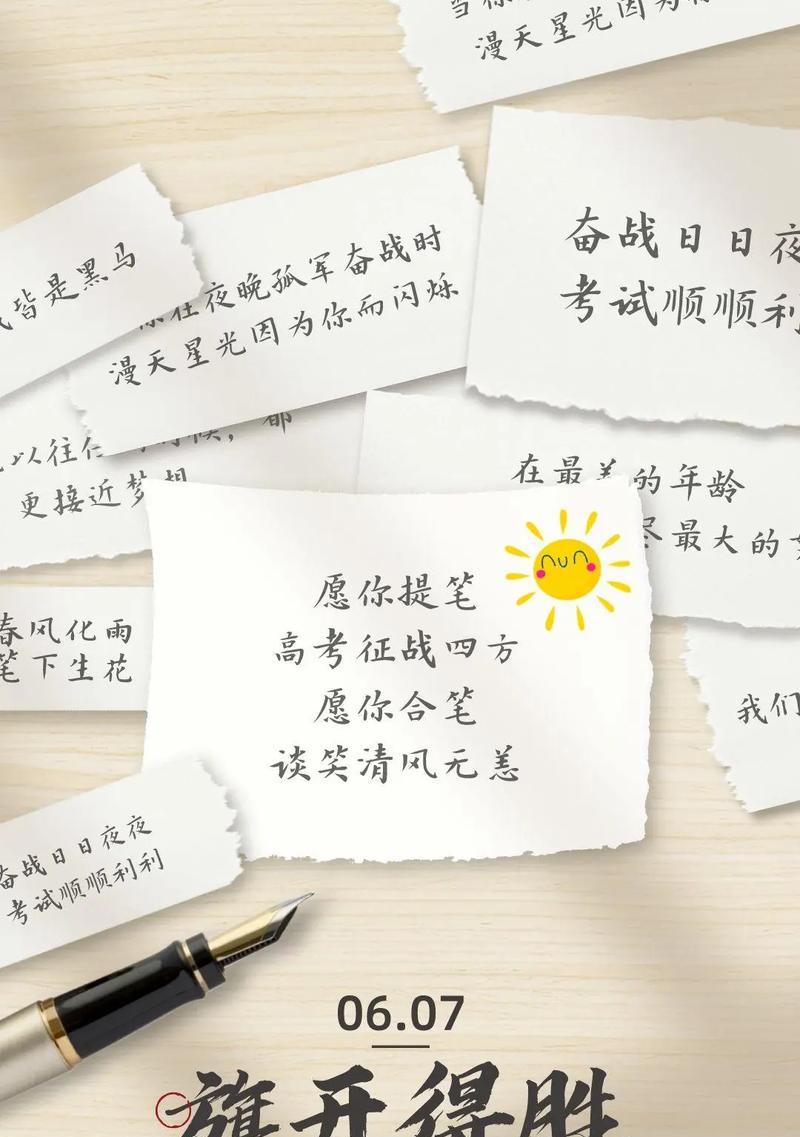 漫天星光因为你
奋战日日夜
考试顺顺利
皆是黑马
你在夜晚孤军奋战时
漫天星光因为你而闪烁
以往任
更接近梦想
在最美的年龄
尽最大的
愿你提笔
高考征战四方
愿你合笔
谈笑清风无恙
春风化雨
笔下生花
我们
奋战日日夜夜
考试顺顺利利
06.07
旗开得胜